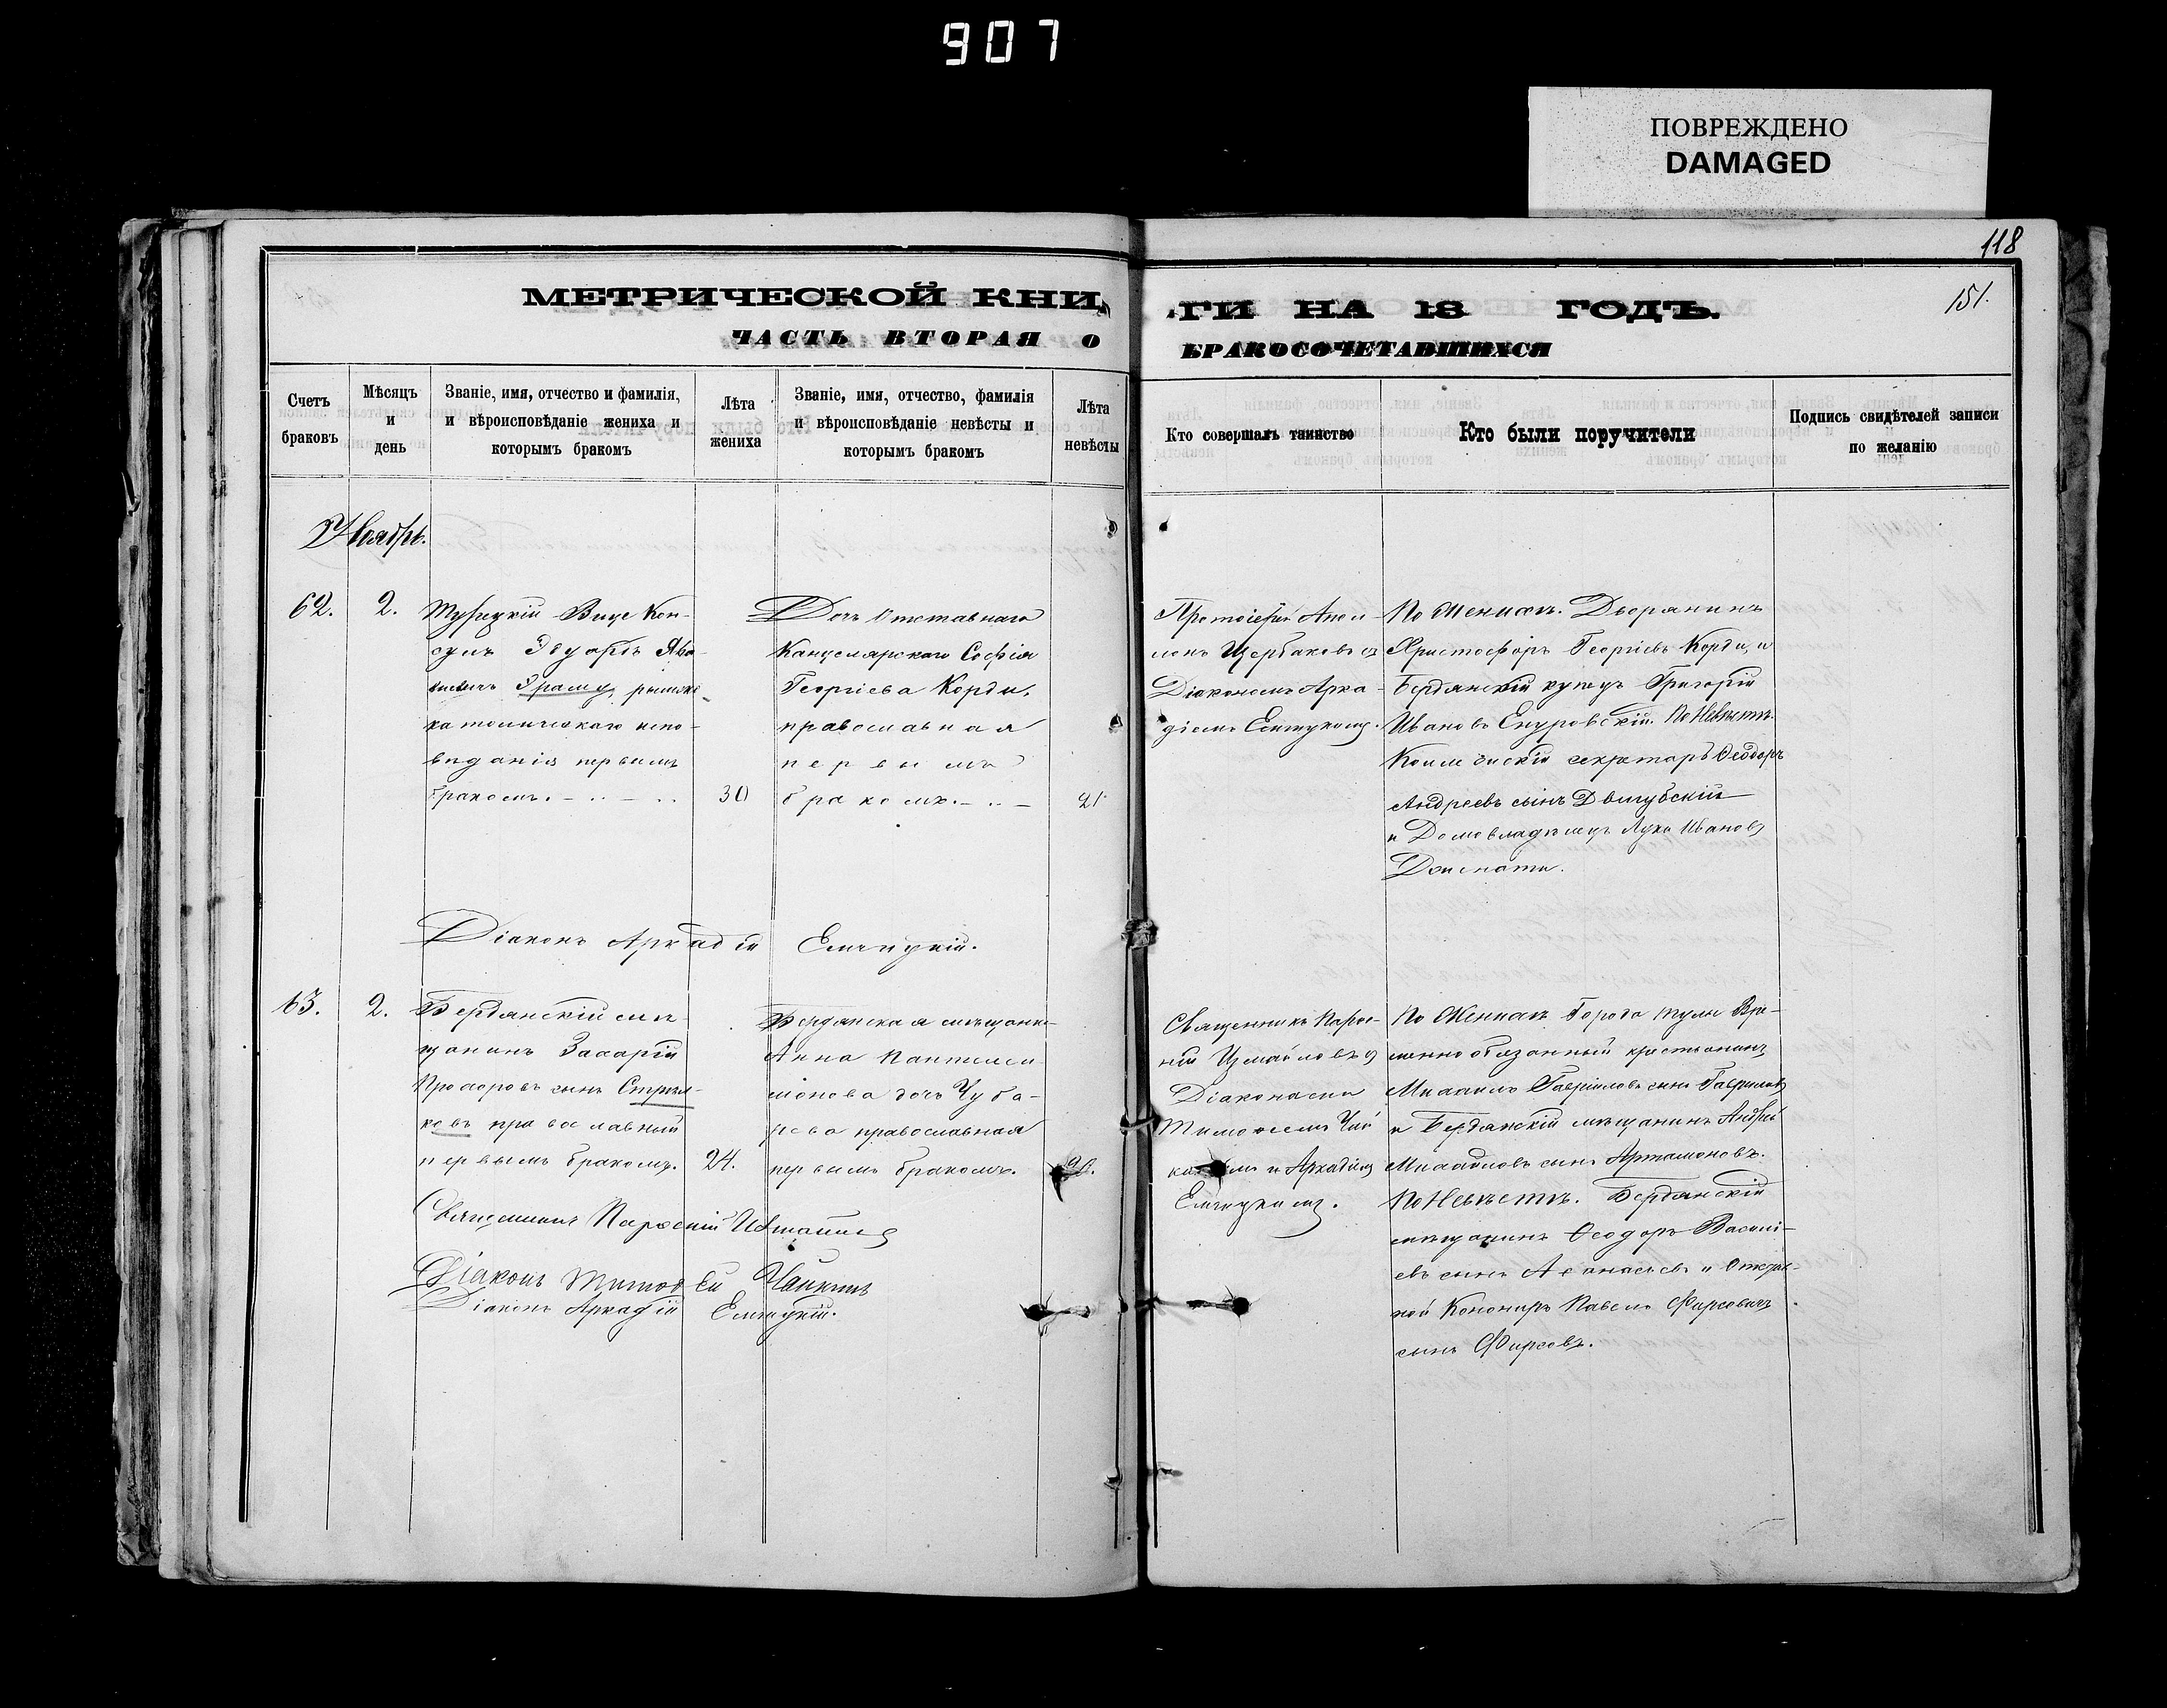 907
ПОВРЕЖДЕНО
DAMAGED
118
151.
МЕТРИЧЕСКОЙ КНИ
ГИ НА 18 ГОДЪ.
ЧАСТЬ ВТОРАЯ О
БРАКОСОЧЕТАВШИХСЯ
Счетъ
браковъ
Мѣсяцъ
и
день
Званіе, имя, отчество и фамилія,
и вѣроисповѣданіе жениха и
которымъ бракомъ
Лѣта
жениха
Званіе, имя, отчество, фамилія
и вѣроисповѣданіе невѣсты и
которымъ бракомъ
Лѣта
невѣсты
Кто совершалъ таинство
Кто были поручители
Подпись свидѣтелей записи
по желанію
Ноябрь.
62.
2.
Турецкій Вице Кон-
сулъ Эдуардъ
римско-
католическаго испо-
вѣданія первымъ
бракомъ.
30
Дочь Отставнаго
Канцелярскаго Софія
Георгіева Корди,
православная
первымъ
бракомъ.
21
Протоіерей Апол-
лонъ Щербаковъ съ
Діакономъ Арка-
діемъ
По Женихѣ. Дворянинъ
Христофоръ Георгіевъ Корди, и
Бердянскій купецъ Григорій
Ивановъ По Невѣстѣ.
секретарь Ѳеодоръ
Андреевъ сынъ Двигубскій
и Домовладѣлецъ Лука Ивановъ
Діаконъ Аркадій
63.
2.
Бердянскій мѣ-
щанинъ Захарій
Прохоровъ сынъ Стрѣл-
ковъ православный
первымъ бракомъ.
24.
Бердянская мѣщанка
Анна Пантелеи-
монова дочь Чуба-
рева православная
первымъ бракомъ.
Священникъ Парѳе-
ній Измайловъ съ
Діаконами
Тимоѳеемъ Чай
и Аркадіемъ
По Женихѣ. Города Тулы Вре-
менно обязанный крестьянинъ
Михаилъ Гавріиловъ сынъ Гавриловъ
и Бердянскій мѣщанинъ Андрей
Михайловъ сынъ Артамоновъ.
По Невѣстѣ. Бердянскій
мѣщанинъ Ѳеодоръ Василі-
евъ сынъ Аѳанасьевъ и Отстав-
ной Канониръ Павелъ Фирсовичъ
сынъ Фирсовъ.
Священникъ Парѳеній Измайловъ
Діаконъ Тимоѳей Чайкинъ
Діаконъ Аркадій